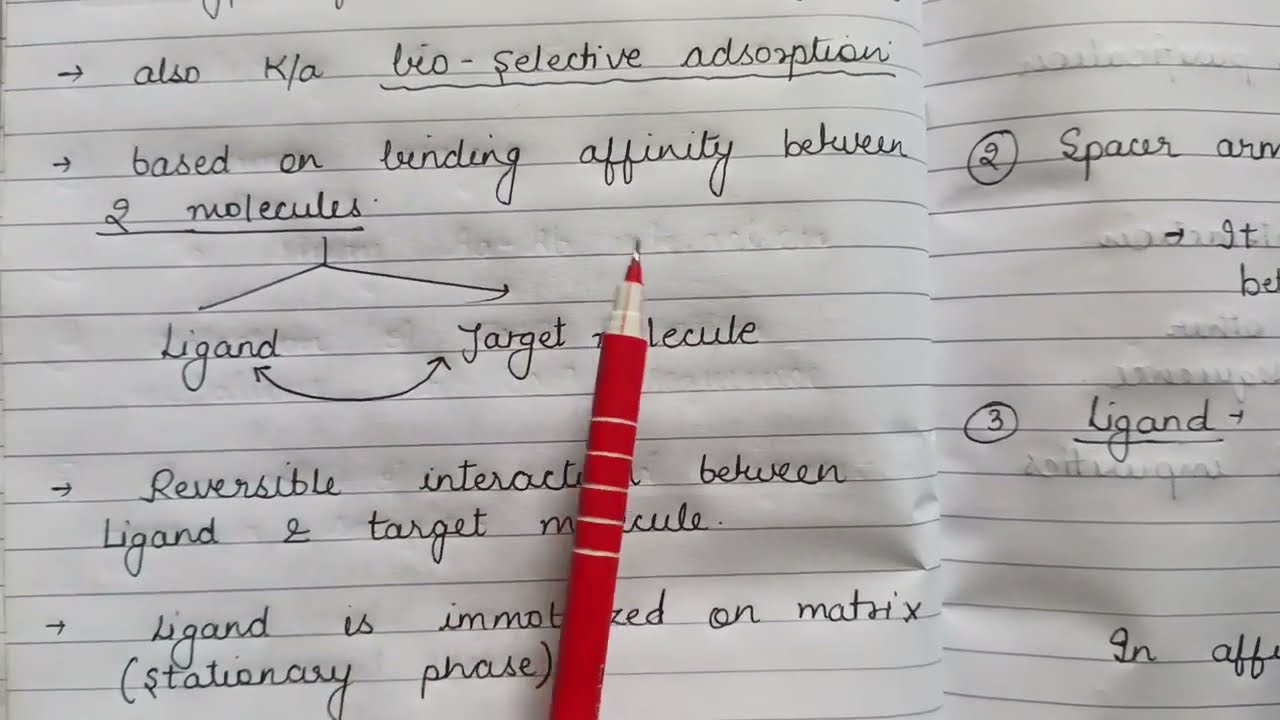 → also K/a bio-selective adsorption.
→ based on binding affinity between
2 molecules.
Ligand Target molecule
→ Reversible interaction between
Ligand & target molecule.
→ Ligand is immobilized on matrix
(stationary phase)
② Spacer arm
→ It
bet
③ Ligand →
In affi